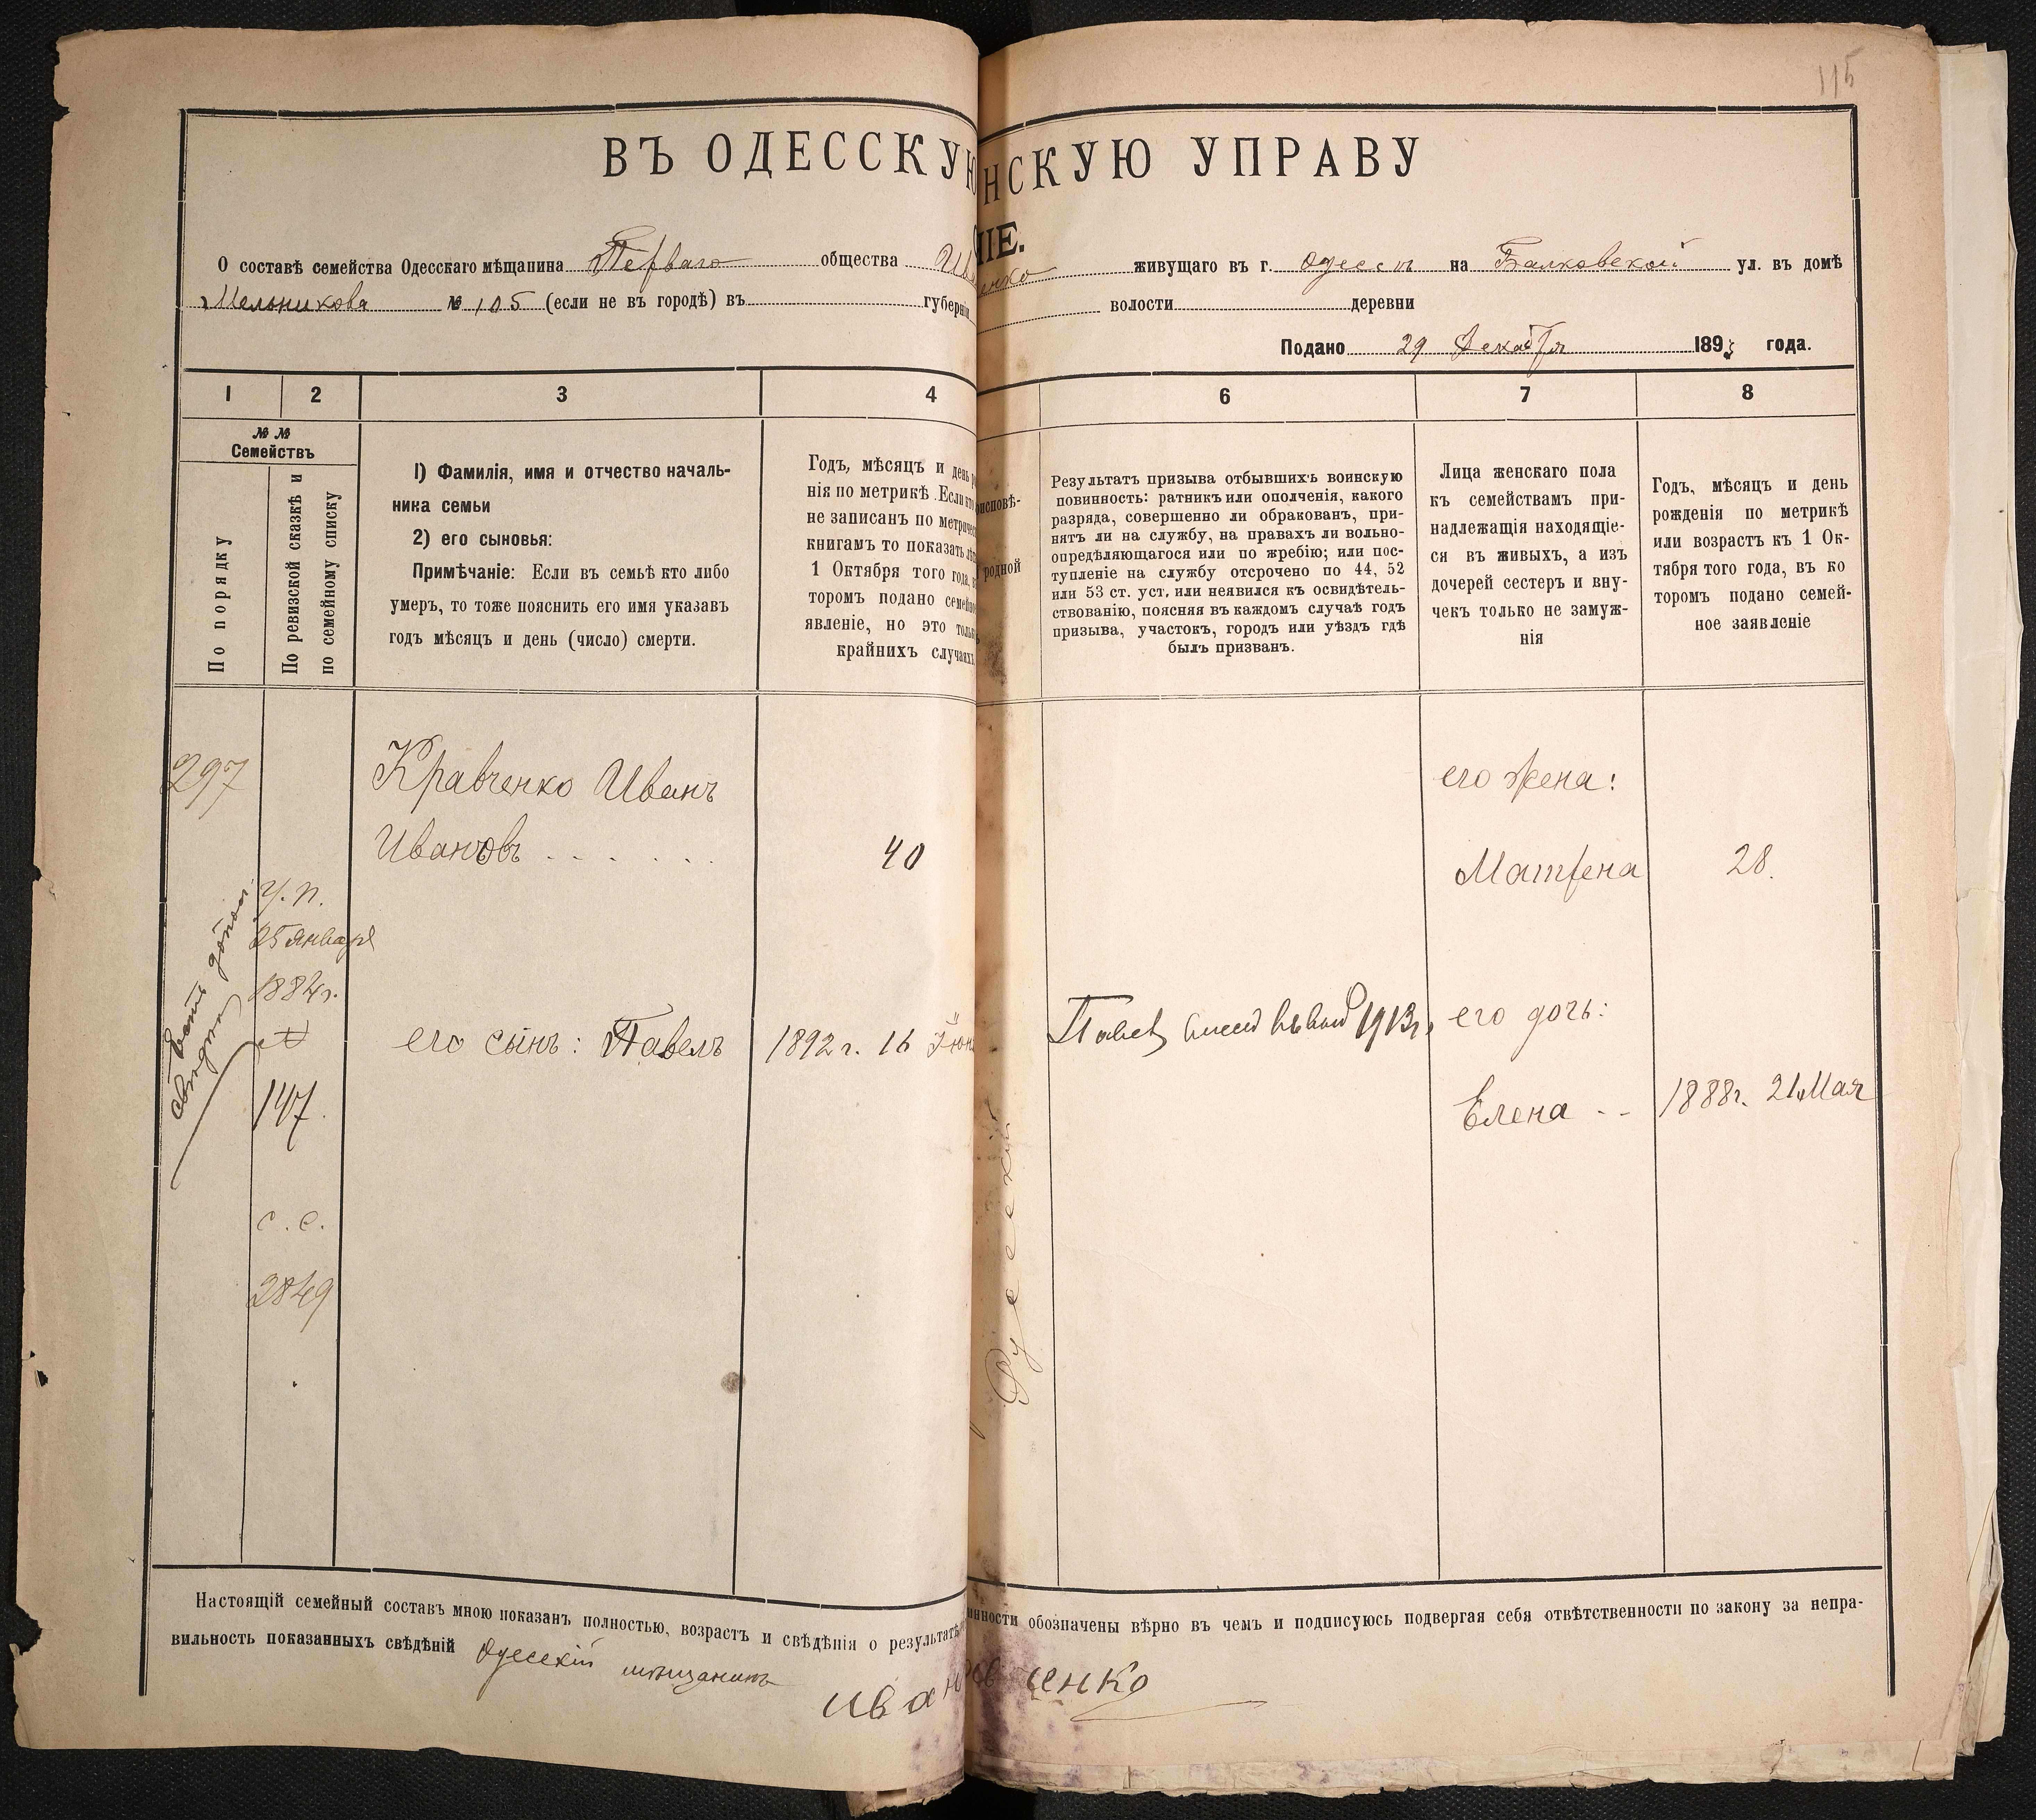 115
ВЪ ОДЕССКУЮ
НСКУЮ УПРАВУ
НІЕ.
О составѣ семейства Одесскаго мѣщанина Перваго общества Ив
енко живущаго въ г. Одессѣ на Балковской ул. въ домѣ
Мельникова № 105 (если не въ городѣ) въ губерніи
волости деревни
Подано 29 Декабря 1893 года.
1 2 3 4 6 7 8
№ № Семействъ
По порядку
По ревизской сказкѣ и
по семейному списку
1) Фамилія, имя и отчество началь-
ника семьи
2) его сыновья:
Примѣчаніе: Если въ семьѣ кто либо
умеръ, то тоже пояснить его имя указавъ
годъ мѣсяцъ и день (число) смерти.
Годъ, мѣсяцъ и день
нія по метрикѣ. Если кто
не записанъ по метрическ
книгамъ то показать
1 Октября того года,
торомъ подано семейн
явленіе, но это только
крайнихъ случаяхъ
исповѣ-
родной
Результатъ призыва отбывшихъ воинскую
повинность: ратникъ или ополченія, какого
разряда, совершенно ли обракованъ, при-
нятъ ли на службу, на правахъ ли вольно-
опредѣляющагося или по жребію; или пос-
тупленіе на службу отсрочено по 44, 52
или 53 ст. уст. или неявился къ освидѣтель-
ствованію, поясняя въ каждомъ случаѣ годъ
призыва, участокъ, городъ или уѣздъ гдѣ
былъ призванъ.
Лица женскаго пола
къ семействамъ при-
надлежащія находящіе-
ся въ живыхъ, а изъ
дочерей сестеръ и вну-
чекъ только не замуж-
нія
Годъ, мѣсяцъ и день
рожденія по метрикѣ
или возрастъ къ 1 Ок-
тября того года, въ ко
торомъ подано семей-
ное заявленіе
297
Кравченко Иванъ
Ивановъ . . . . . . 40
его жена:
Матрена 28.
у. п.
25 января
1884 г.
№
147.
с. с.
2849
Есть
его сынъ: Павелъ 1892 г. 16 Іюн
Русскій
Павел 1913 г.
его дочь:
Елена - - 1888 г. 21 Мая
Настоящій семейный составъ мною показанъ полностью, возрастъ и свѣдѣнія о результатѣ
инности обозначены вѣрно въ чемъ и подписуюсь подвергая себя отвѣтственности по закону за непра-
вильность показанныхъ свѣдѣній Одесскій мѣщанинъ
Иван
енко